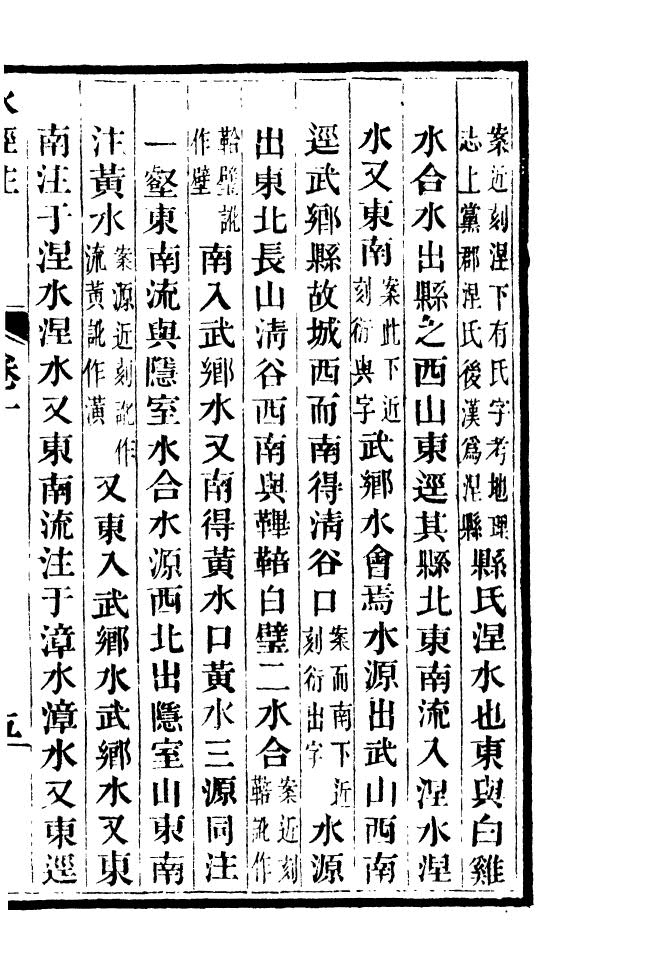 案近刻涅下有氏字考地理
志上黨郡涅氏後漢爲涅縣
縣氏涅水也東與白雞
水合水出縣之西山東逕其縣北東南流入涅水涅
水又東南
案此下近
刻衍與字
武鄉水會焉水源出武山西南
逕武鄉縣故城西而南得清谷口
案而南下近
刻衍出字
水源
出東北長山清谷西南與鞞鞛白璧二水合
案近刻
鞛訛作
鞈璧訛
作壁
南入武鄉水又南得黃水口黃水三源同注
一壑東南流與隱室水合水源西北出隱室山東南
注黃水
案源近刻訛作
流黃訛作潢
又東入武鄉水武鄉水又東
南注于涅水涅水又東南流注于漳水漳水又東逕
水經注
卷十
五